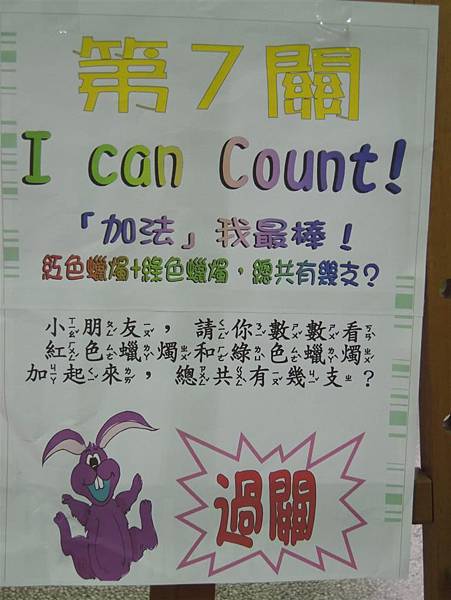 第7關
I can Count!
「加法」我最棒！
紅色蠟燭+綠色蠟燭，總共有幾支?
小朋友，請你數數看
紅色蠟燭和綠色蠟燭
加起來，總共有幾支？
過關